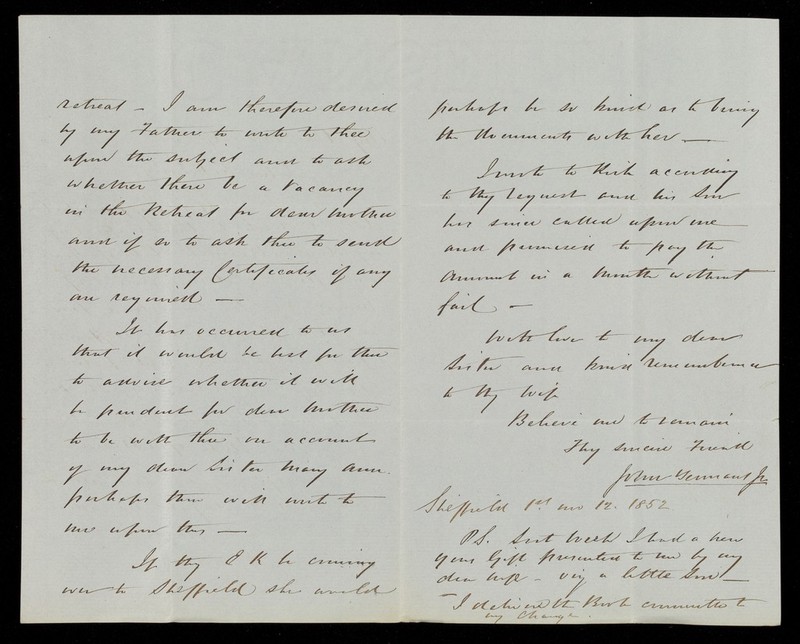 retreat – I am therefore desired
by my Father to write to thee
upon the subject and to ask
whether there be a Vacancy
in the Retreat for dear Mother
and if so to ask thee to send
the necessary Certificates if any
are required —
It has occurred to us
that it would be best for thee
to advise whether it will
be prudent for dear Mother
to be with thee on account
of my dear Sister Mary Ann.
perhaps thou will write to
me upon this —
If thy E K be coming
over to Sheffield she would
perhaps be so kind as to bring
the documents with her —
I wrote to Kirk according
to thy request and his Son
has since called upon me
and promised to pay the
amount in a month without
fail –
With love to my dear
Sister and kind remembrance
to thy Wife
Believe me to remain
Thy sincere Friend
John Jr
Sheffield 1st mo 12. 1852
PS. Last Week I had a new
years Gift presented to me by my
dear wife – viz a little Son –
I delivered the Book committed to
my charge.